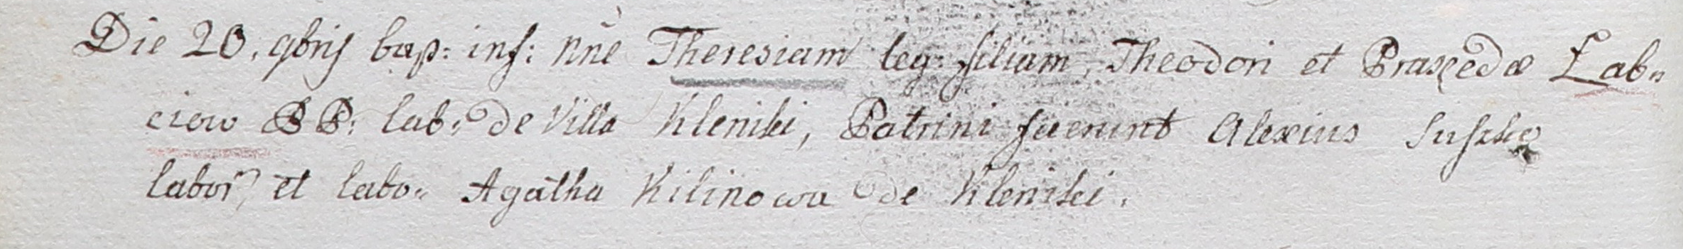 Die 20. 9bris bap: inf: nne Theresiam leg: filiam, Theodori et Praxedæ Łab„
ciow PP: lab: de Villa Kleniki, Patrini fuerunt Alexius
labor, et labo„ Agatha Kilinowa de Kleniki.